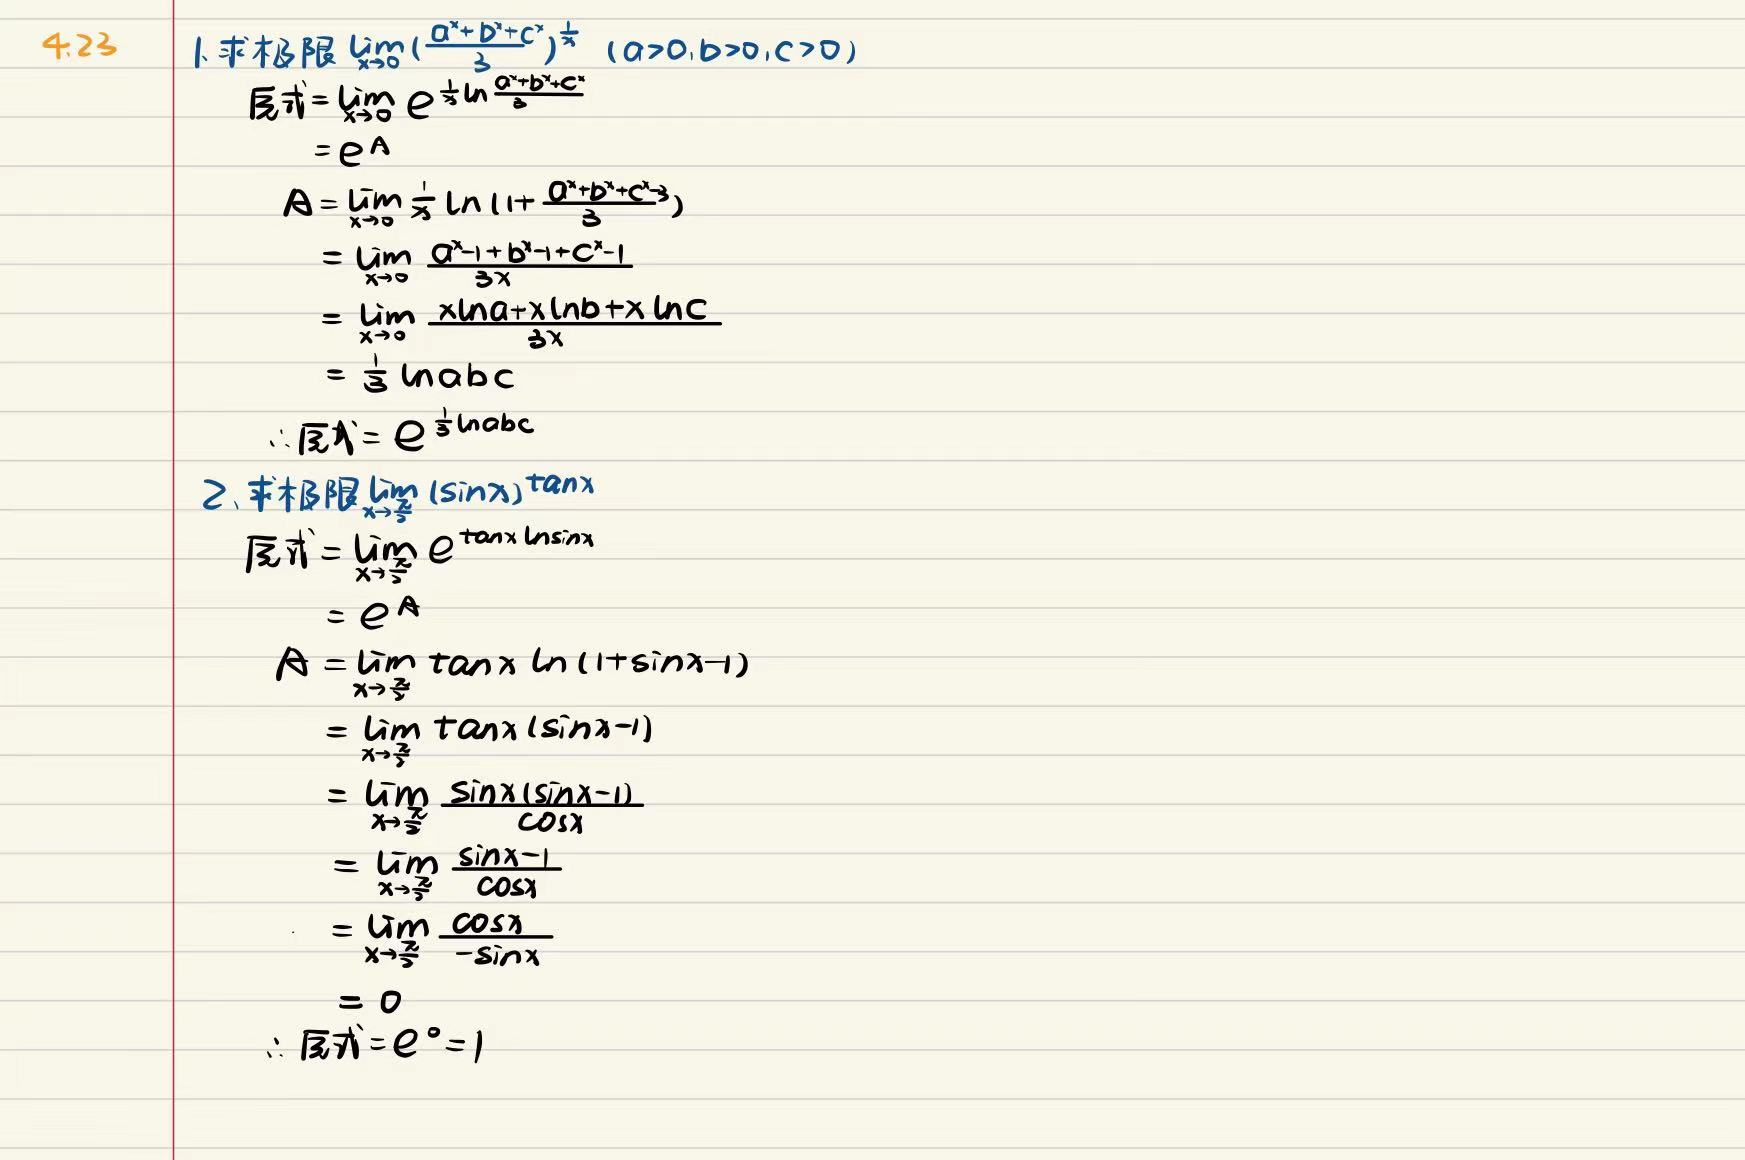 4.23
1.求极限 lim x→0 (a^x+b^x+c^x/3)^1/x (a>0,b>0,c>0)
原式=lim x→0 e^(1/x ln (a^x+b^x+c^x)/3)
=e^A
A=lim x→0 1/x ln(1+(a^x+b^x+c^x-3)/3)
=lim x→0 (a^x-1+b^x-1+c^x-1)/3x
=lim x→0 (xlna+xlnb+xlnc)/3x
=1/3 lnabc
∴原式=e^(1/3 lnabc)
2、求极限 lim x→π/2 (sinx)^tanx
原式=lim x→π/2 e^(tanx lnsinx)
=e^A
A=lim x→π/2 tanx ln(1+sinx-1)
=lim x→π/2 tanx(sinx-1)
=lim x→π/2 sinx(sinx-1)/cosx
=lim x→π/2 (sinx-1)/cosx
=lim x→π/2 cosx/-sinx
=0
∴原式=e^0=1